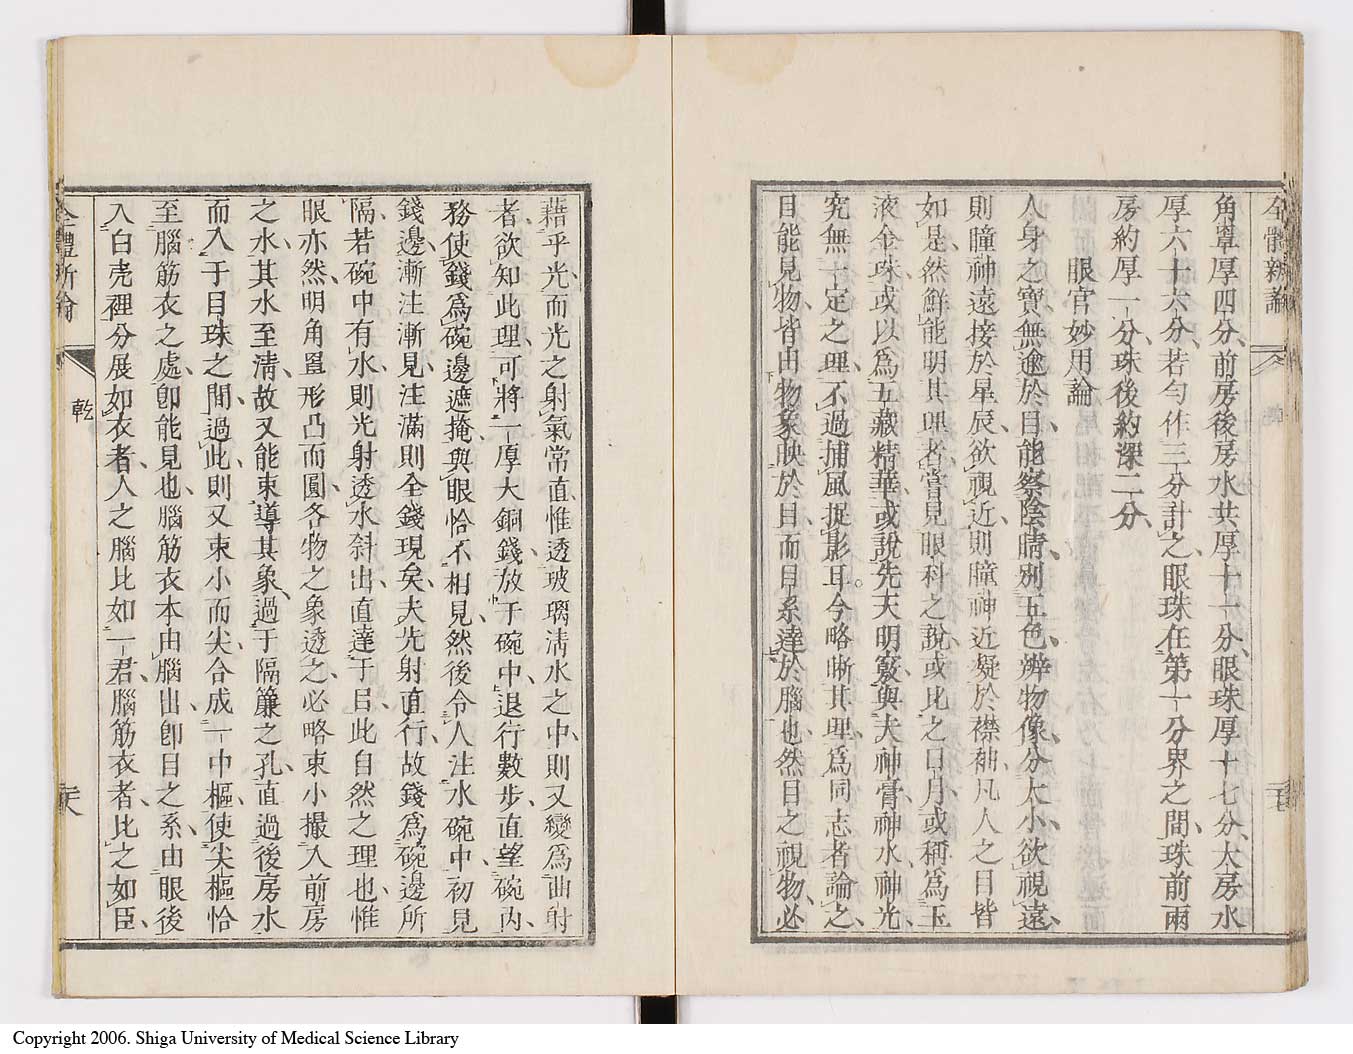 全體新論
角罩厚四分、前房後房水共厚十一分、眼珠厚十七分、大房水
厚六十六分、若勻作三分計之、眼珠在第一分界之間、珠前兩
房約厚一分、珠後約深二分、
眼官妙用論
人身之寶無逾於目、能察陰晴、別五色、辨物像、分大小、欲視遠、
則瞳神遠接於星辰、欲視近、則瞳神近凝於襟袖、凡人之目皆
如是、然鮮能明其理者、嘗見眼科之說、或比之日月、或稱爲玉
液金珠、或以爲五藏精華、或說先天明竅、與夫神膏神水神光、
究無一定之理、不過捕風捉影耳。今略晰其理、爲同志者論之、
目能見物、皆由物象映於目、而目系達於腦也、然目之視物、必
藉乎光、而光之射氣常直、惟透玻璃淸水之中、則又變爲曲射
者、欲知此理、可將一厚大銅錢放于碗中、退行數步、直望碗內、
務使錢爲碗邊遮掩、與眼恰不相見、然後令人注水碗中、初見
錢邊、漸注漸見、注滿則全錢現矣、夫光射直行、故錢爲碗邊所
隔、若碗中有水、則光射透水斜出、直達于目、此自然之理也、惟
眼亦然、明角罩形凸而圓、各物之象透之、必略束小、撮入前房
之水、其水至淸、故又能束導其象、過于隔簾之孔、直過後房水
而入于目珠之間、過此則又束小而尖、合成一中樞、使尖樞恰
至腦筋衣之處、卽能見也、腦筋衣本由腦出、卽目之系、由眼後
入白壳裡、分展如衣者、人之腦比如一君、腦筋衣者、比之如臣、
全體新論
乾